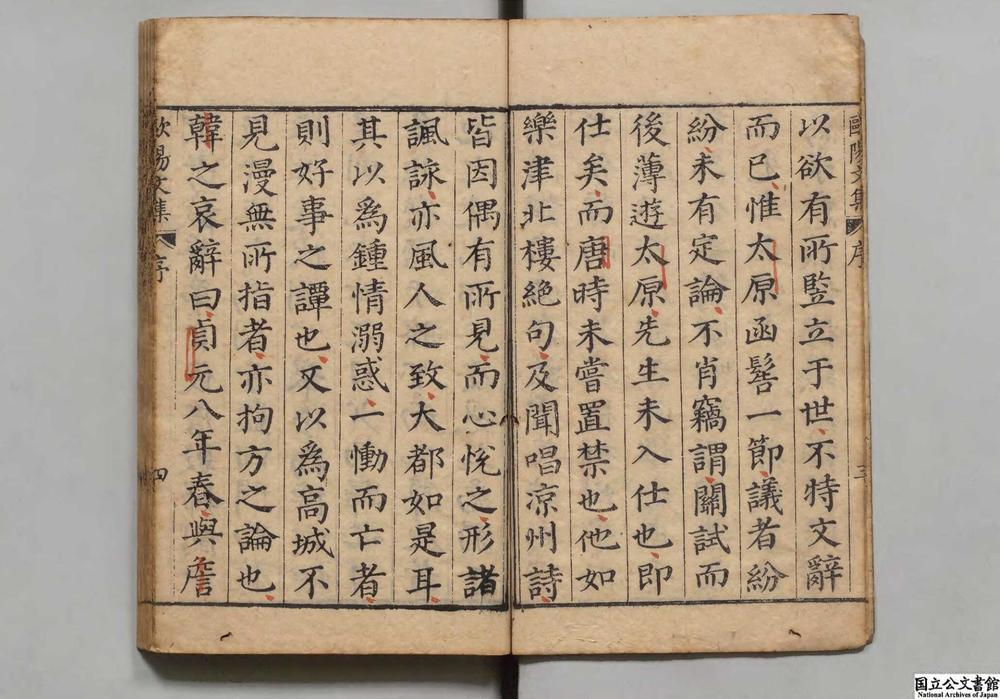 歐陽文集 序 三
以欲有所豎立于世不特文辭
而已惟太原函髻一節議者紛
紛未有定論不肖竊謂關試而
後薄遊太原先生未入仕也即
仕矣而唐時未嘗置禁也他如
樂津北樓絕句及聞唱涼州詩
皆因偶有所見而心悅之形諸
諷詠亦風人之致大都如是耳
其以爲鍾情溺惑一慟而亡者
則好事之譚也又以爲高城不
見漫無所指者亦拘方之論也
韓之哀辭曰貞元八年春與詹
歐陽文集 序 四
国立公文書館
National Archives of Japan